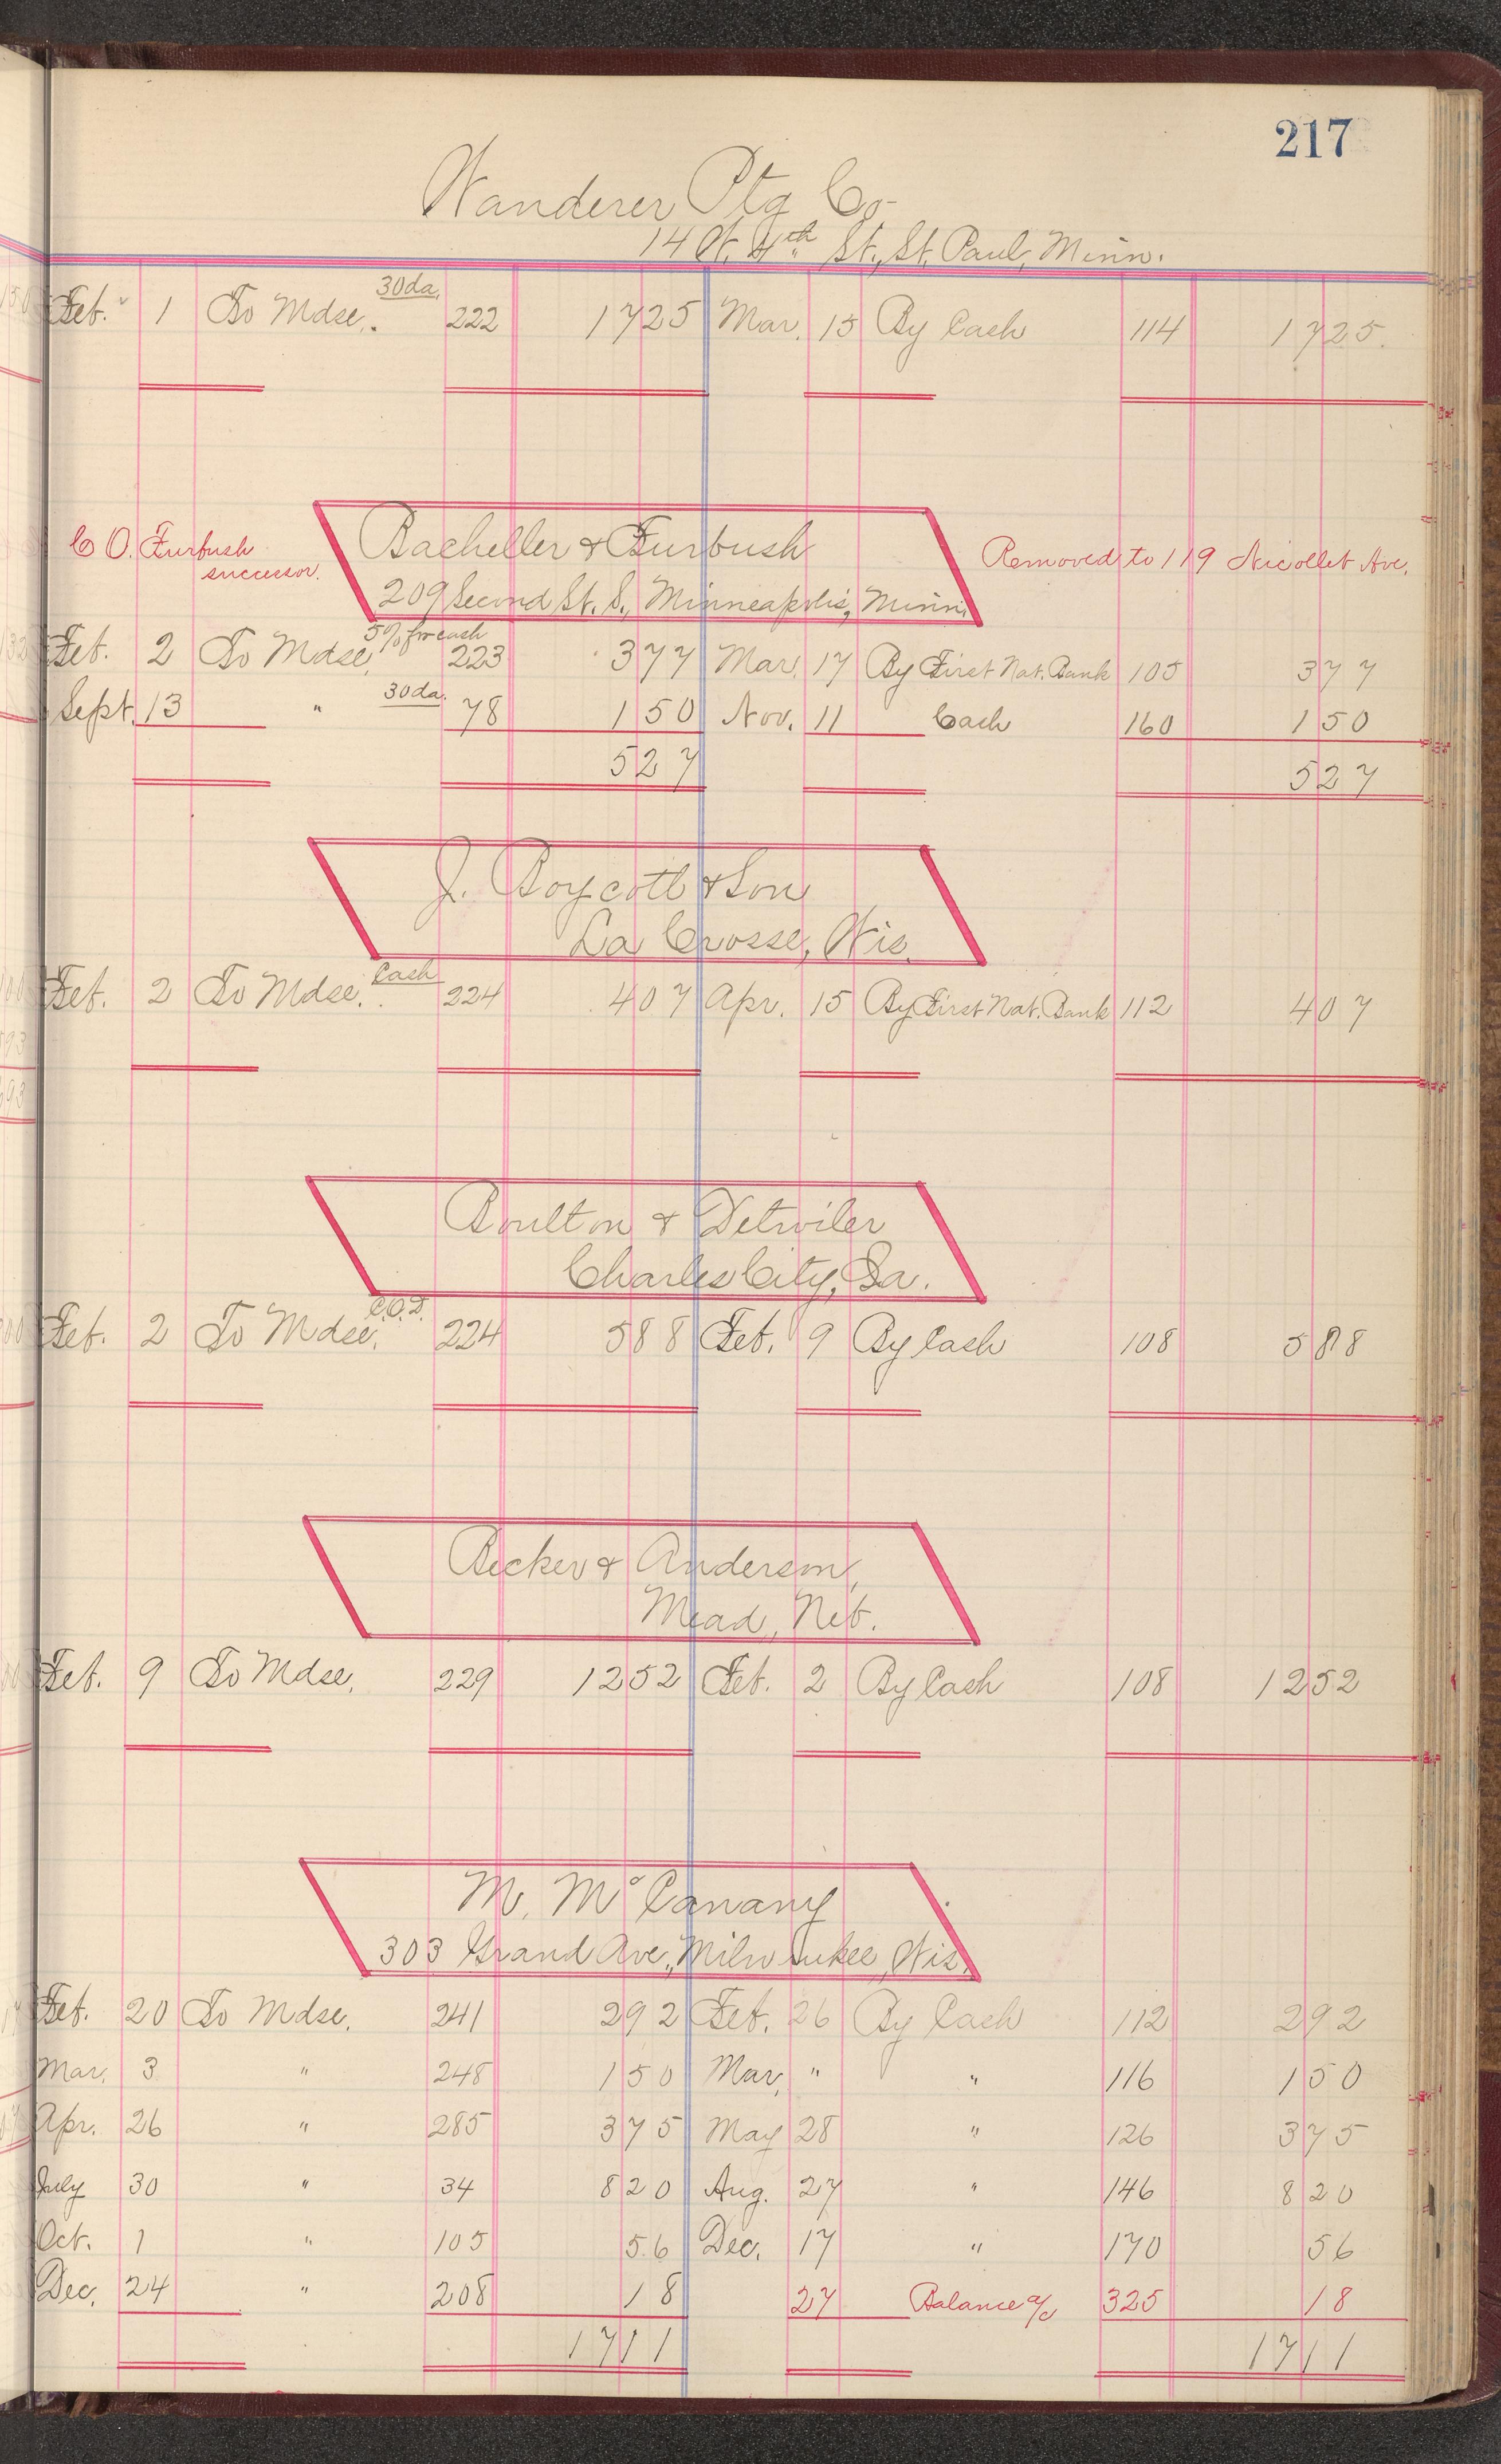 217
Wanderer Ptg Co
14 W. 4th St., St. Paul, Minn.
Feb. 1 To Mdse. 30da. 222 1725 Mar. 15 By Cash 114 1725.
C O. Furbush successor.
Bacheller & Furbush
209 Second St. S., Minneapolis, Minn.
Removed to 119 Nicollet Ave.
Feb. 2 To Mdse. 5% for cash 223 377 Mar. 17 By First Nat. Bank 105 377
Sept. 13 " 30da. 78 150 Nov. 11 Cash 160 150
527 527
J. Boycott & Son
La Crosse, Wis.
Feb. 2 To Mdse. Cash 224 407 Apr. 15 By First Nat. Bank 112 407
Boulton & Detwiler
Charles City, Ia.
Feb. 2 To Mdse. C.O.D. 224 588 Feb. 9 By Cash 108 588
Becker & Anderson,
Mead, Neb.
Feb. 9 To Mdse. 229 1252 Feb. 2 By Cash 108 1252
M. McCanany
303 Grand Ave., Milwaukee, Wis.
Feb. 20 To Mdse. 241 292 Feb. 26 By Cash 112 292
Mar. 3 " 248 150 Mar. " " 116 150
Apr. 26 " 285 375 May 28 " 126 375
July 30 " 34 820 Aug. 27 " 146 820
Oct. 1 " 105 56 Dec. 17 " 170 56
Dec. 24 " 208 18 27 Balance a/c 325 18
1711 1711